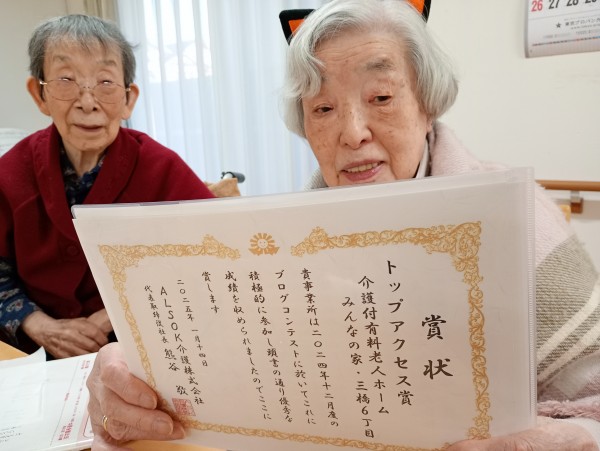 賞状
トップアクセス賞
介護付有料老人ホーム
みんなの家・三橋6丁目
貴事業所は二〇二四年十二月度の
ブログコンテストに於いてこれに
積極的に参加し頭書の通り優秀な
成績を収められましたのでここに
賞します
二〇二五年 一月十四日
ALSOK介護株式会社
代表取締役社長 熊谷 敬
26 27 28